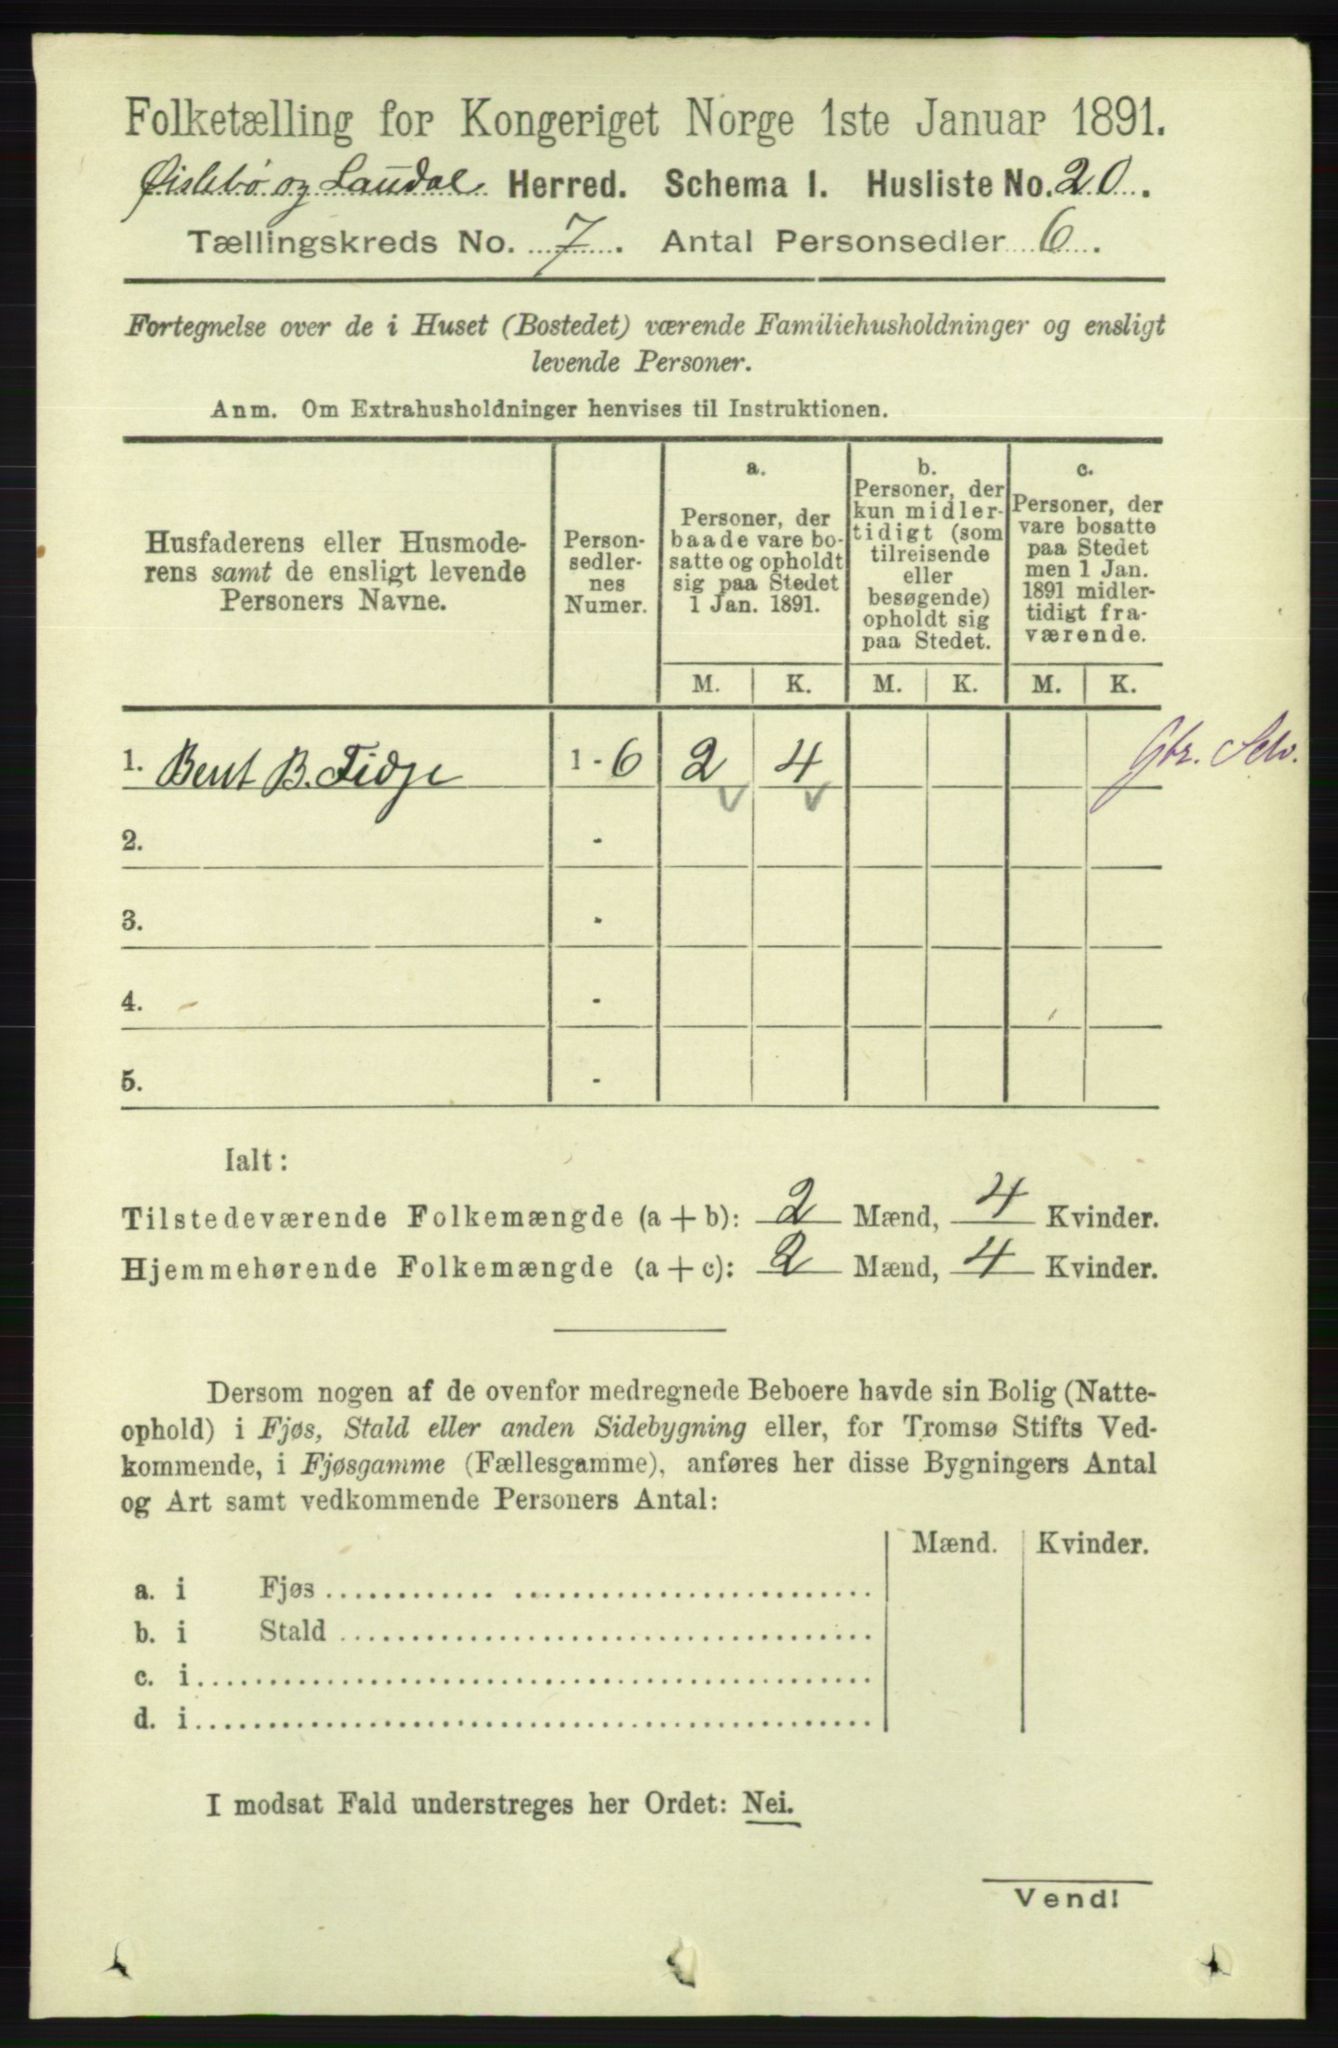 Folketælling for Kongeriget Norge 1ste Januar 1891.
Øislebø og Laudal Herred. Schema I. Husliste No. 20.
Tællingskreds No. 7. Antal Personsedler 6.
Fortegnelse over de i Huset (Bostedet) værende Familiehusholdninger og ensligt
levende Personer.
Anm. Om Extrahusholdninger henvises til Instruktionen.
Husfaderens eller Husmode-
rens samt de ensligt levende
Personers Navne.
Person-
sedler-
nes
Numer.
a.
Personer, der
baade vare bo-
satte og opholdt
sig paa Stedet
1 Jan. 1891.
b.
Personer, der
kun midler-
tidigt (som
tilreisende
eller
besøgende)
opholdt sig
paa Stedet.
c.
Personer, der
vare bosatte
paa Stedet
men 1 Jan.
1891 midler-
tidigt fra-
værende.
M. K. M. K. M. K.
1. Bent B. Fidje 1 - 6 2 4 Gbr. Selv.
2. -
3. -
4. -
5. -
Ialt:
Tilstedeværende Folkemængde (a + b): 2 Mænd, 4 Kvinder.
Hjemmehørende Folkemængde (a + c): 2 Mænd, 4 Kvinder.
Dersom nogen af de ovenfor medregnede Beboere havde sin Bolig (Natte-
ophold) i Fjøs, Stald eller anden Sidebygning eller, for Tromsø Stifts Ved-
kommende, i Fjøsgamme (Fællesgamme), anføres her disse Bygningers Antal
og Art samt vedkommende Personers Antal:
Mænd. Kvinder.
a. i Fjøs
b. i Stald
c. i
d. i
I modsat Fald understreges her Ordet: Nei.
Vend!